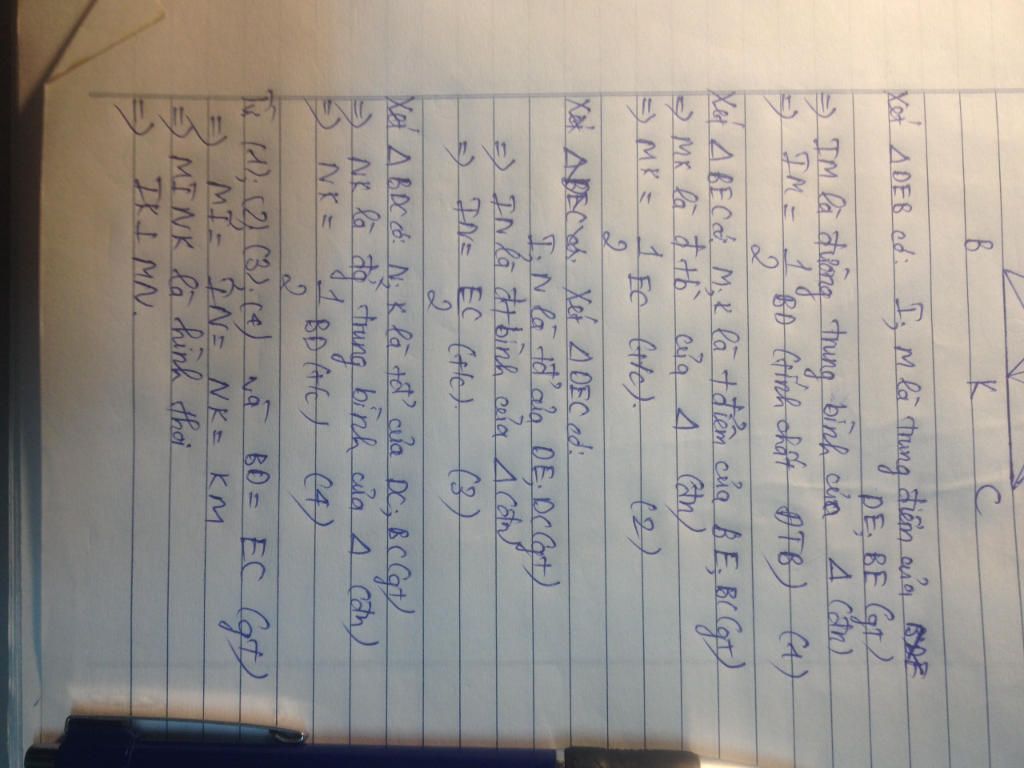 B K C
Xét Δ DEB có: I, M là trung điểm của
DE; BE (gt)
=) IM là đường trung bình của Δ (đn)
=) IM = 1/2 BD (tính chất ĐTB) (1)
Xét Δ BEC có: M; K là t điểm của BE; BC (gt)
=) MK là đ tb của Δ (đn)
=) MK = 1/2 EC (t/c). (2)
Xét ΔDEC có: Xét Δ DEC có:
I, N là tđ của DE; DC (gt)
=) IN là đtbình của Δ (đn)
=) IN = EC/2 (t/c). (3)
Xét Δ BDC có: N; K là tđ của DC; BC (gt)
=) NK là đg trung bình của Δ (đn)
=) NK = 1/2 BD (t/c) (4)
Từ (1), (2) (3), (4) và BD = EC (gt)
=) MI = IN = NK = KM
=) MINK là hình thoi
=) IK ⊥ MN.